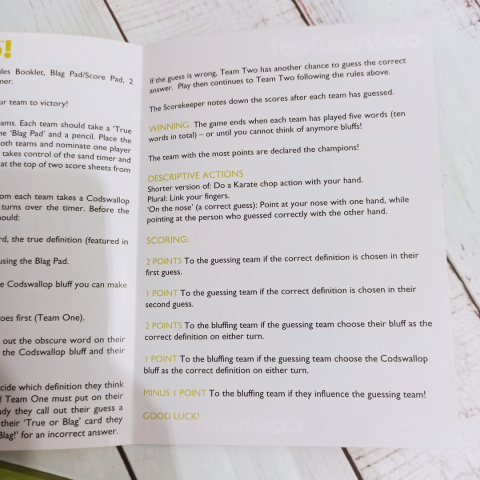 !
les Booklet, Blag Pad/Score Pad, 2
ner.
ur team to victory!
ams. Each team should take a 'True
ne 'Blag Pad' and a pencil. Place the
oth teams and nominate one player
takes control of the sand timer and
at the top of two score sheets from
om each team takes a Codswallop
turns over the timer. Before the
hould:
rd, the true definition (featured in
using the Blag Pad.
e Codswallop bluff you can make
oes first (Team One).
out the obscure word on their
the Codswallop bluff and their
cide which definition they think
Team One must put on their
dy they call out their guess a
their 'True or Blag' card they
Blag!' for an incorrect answer.
If the guess is wrong, Team Two has another chance to guess the correct
answer. Play then continues to Team Two following the rules above.
The Scorekeeper notes down the scores after each team has guessed.
WINNING: The game ends when each team has played five words (ten
words in total) – or until you cannot think of anymore bluffs!
The team with the most points are declared the champions!
DESCRIPTIVE ACTIONS
Shorter version of: Do a Karate chop action with your hand.
Plural: Link your fingers.
'On the nose' (a correct guess): Point at your nose with one hand, while
pointing at the person who guessed correctly with the other hand.
SCORING:
2 POINTS To the guessing team if the correct definition is chosen in their
first guess.
1 POINT To the guessing team if the correct definition is chosen in their
second guess.
2 POINTS To the bluffing team if the guessing team choose their bluff as the
correct definition on either turn.
1 POINT To the bluffing team if the guessing team choose the Codswallop
bluff as the correct definition on either turn.
MINUS 1 POINT To the bluffing team if they influence the guessing team!
GOOD LUCK!